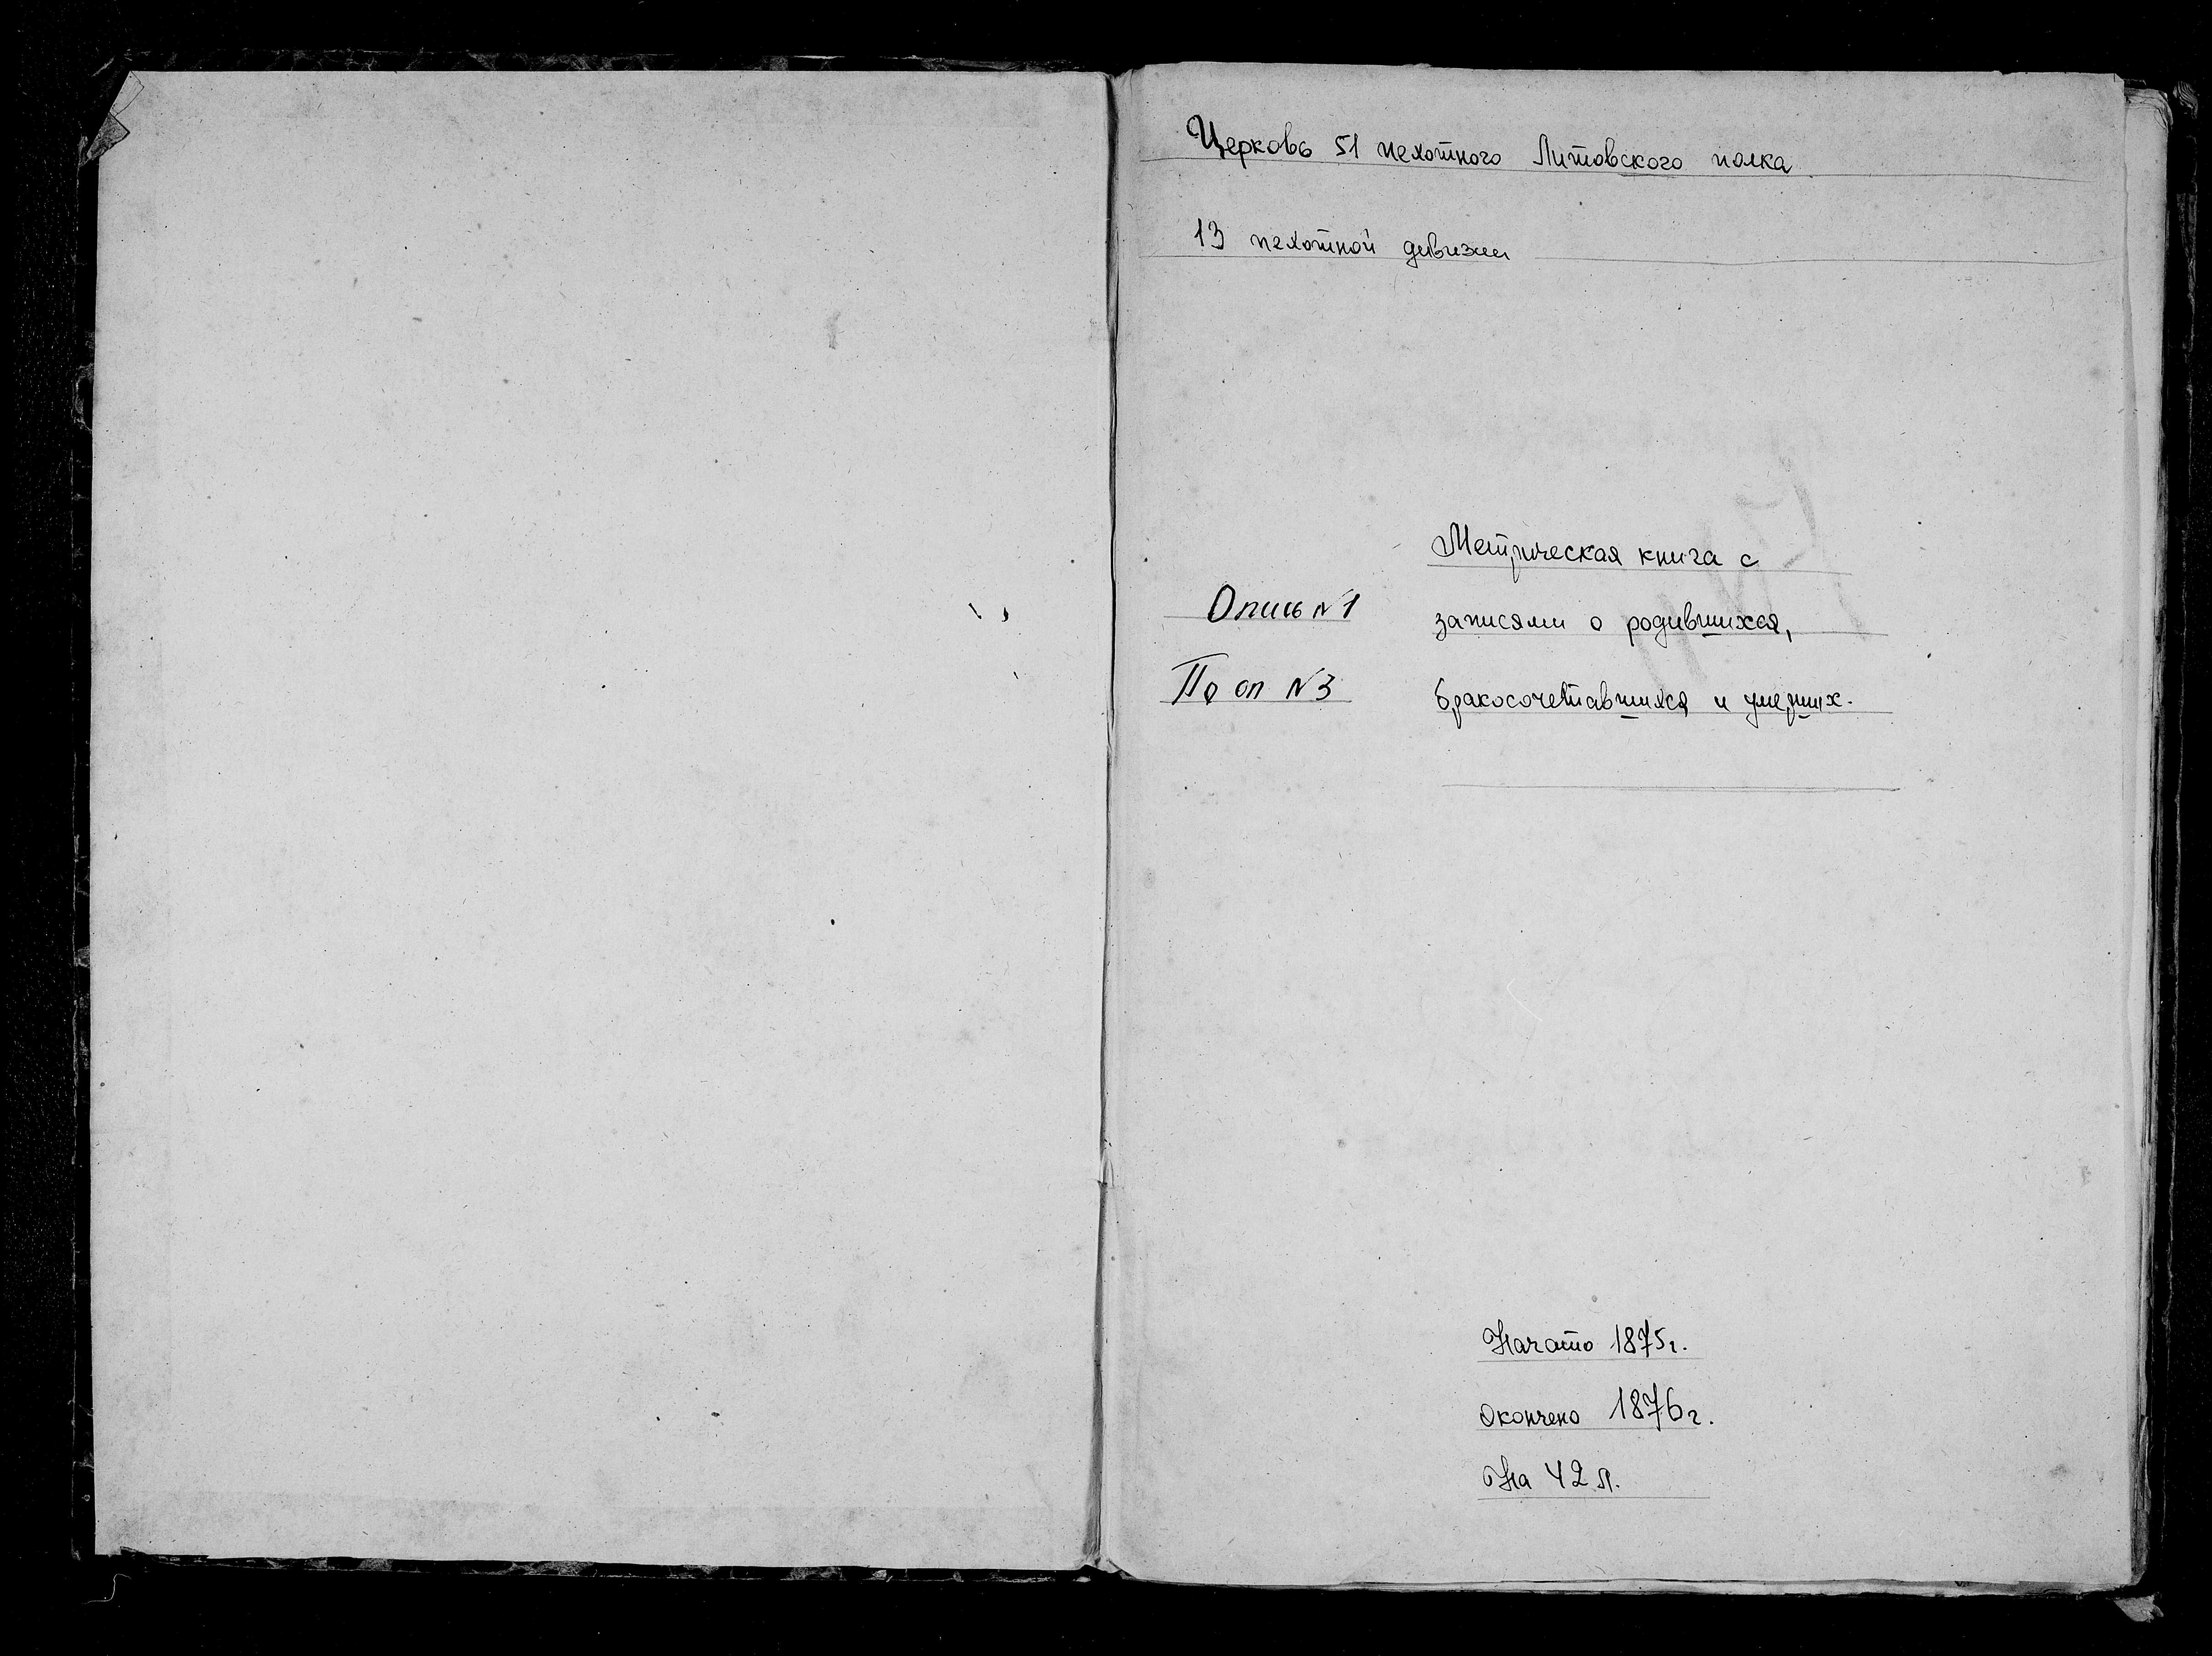 Церковь 51 пехотного Литовского полка
13 пехотной дивизии
Метрическая книга с
Опись №1
записями о родившихся,
По оп №3
бракосочетавшихся и умерших.
Начато 1875г.
Окончено 1876г.
На 42 л.